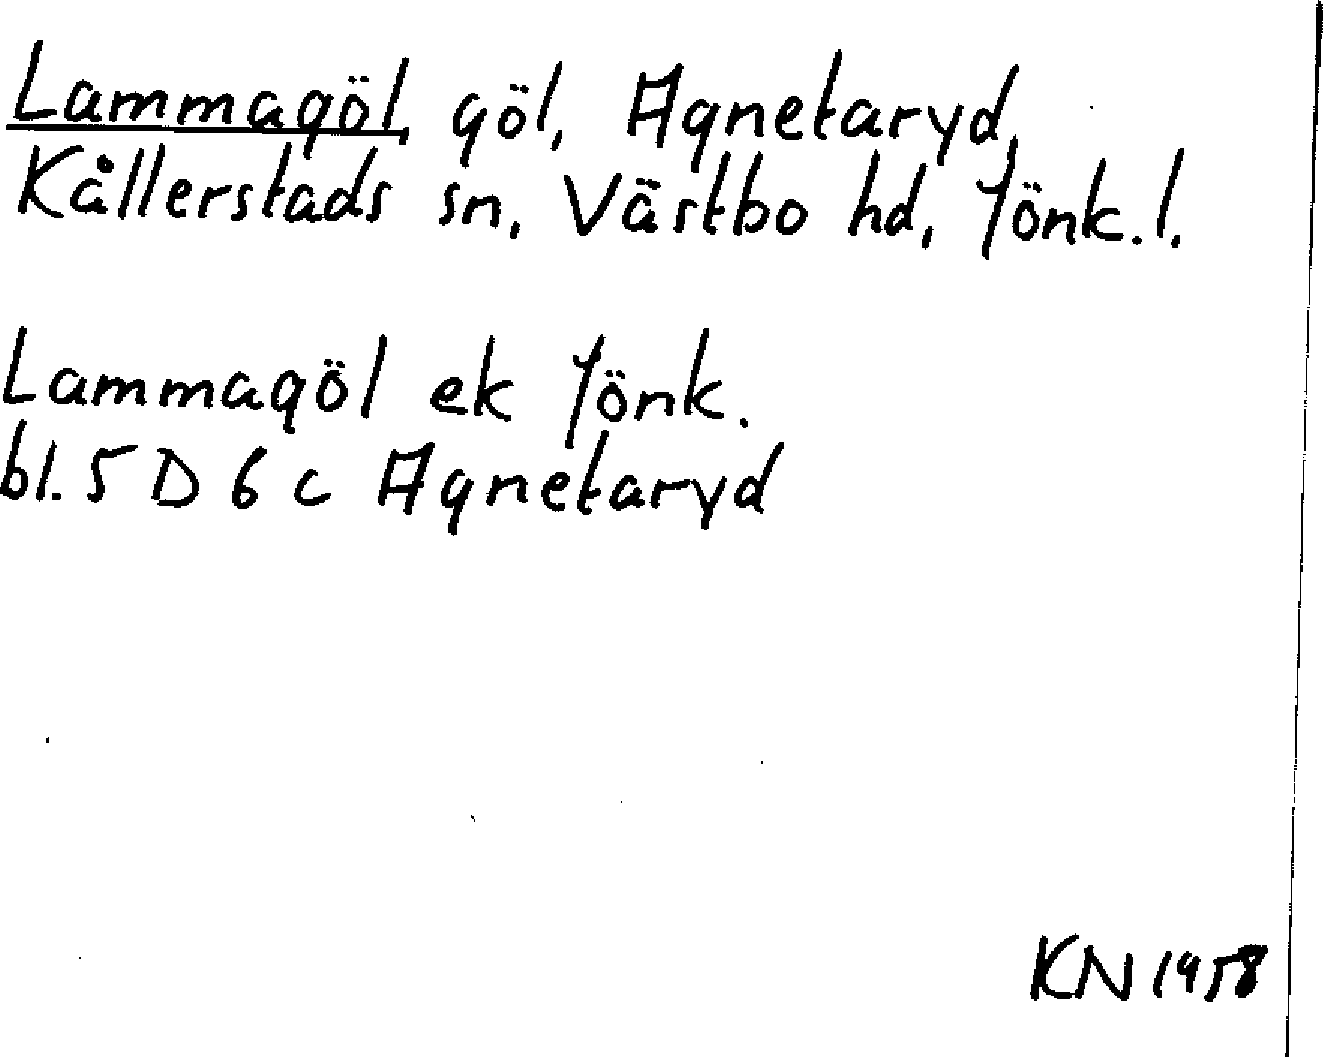 Lammagöl, göl, Agnetaryd,
Kållerstads sn, Västbo hd, Jönk.l.
Lammagöl ek Jönk.
bl. 5 D 6 c Agnetaryd
KN 1958